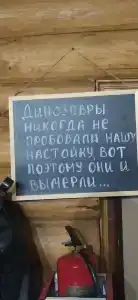 ДИНОЗАВРЫ
НИКОГДА НЕ
ПРОБОВАЛИ НАШУ
НАСТОЙКУ, ВОТ
ПОЭТОМУ ОНИ И
ВЫМЕРЛИ...